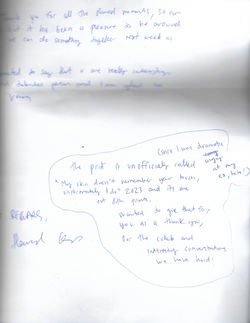 Thank you for all the shared moments, so fun
that it has been a pleasure to be around
we can do something together next week as
wanted to say that u are really interesting
and talented person and I am glad
you
(since I was dramatic
angry
at my
ex, haha!)
The print is unofficially called
"My skin doesn't remember your touch,
unfortunately I do" 2023 and its one
out of 8th prints.
Wanted to give that to
you as a thank you,
for the collab and
interesting conversations
we have had!
REGARDS,